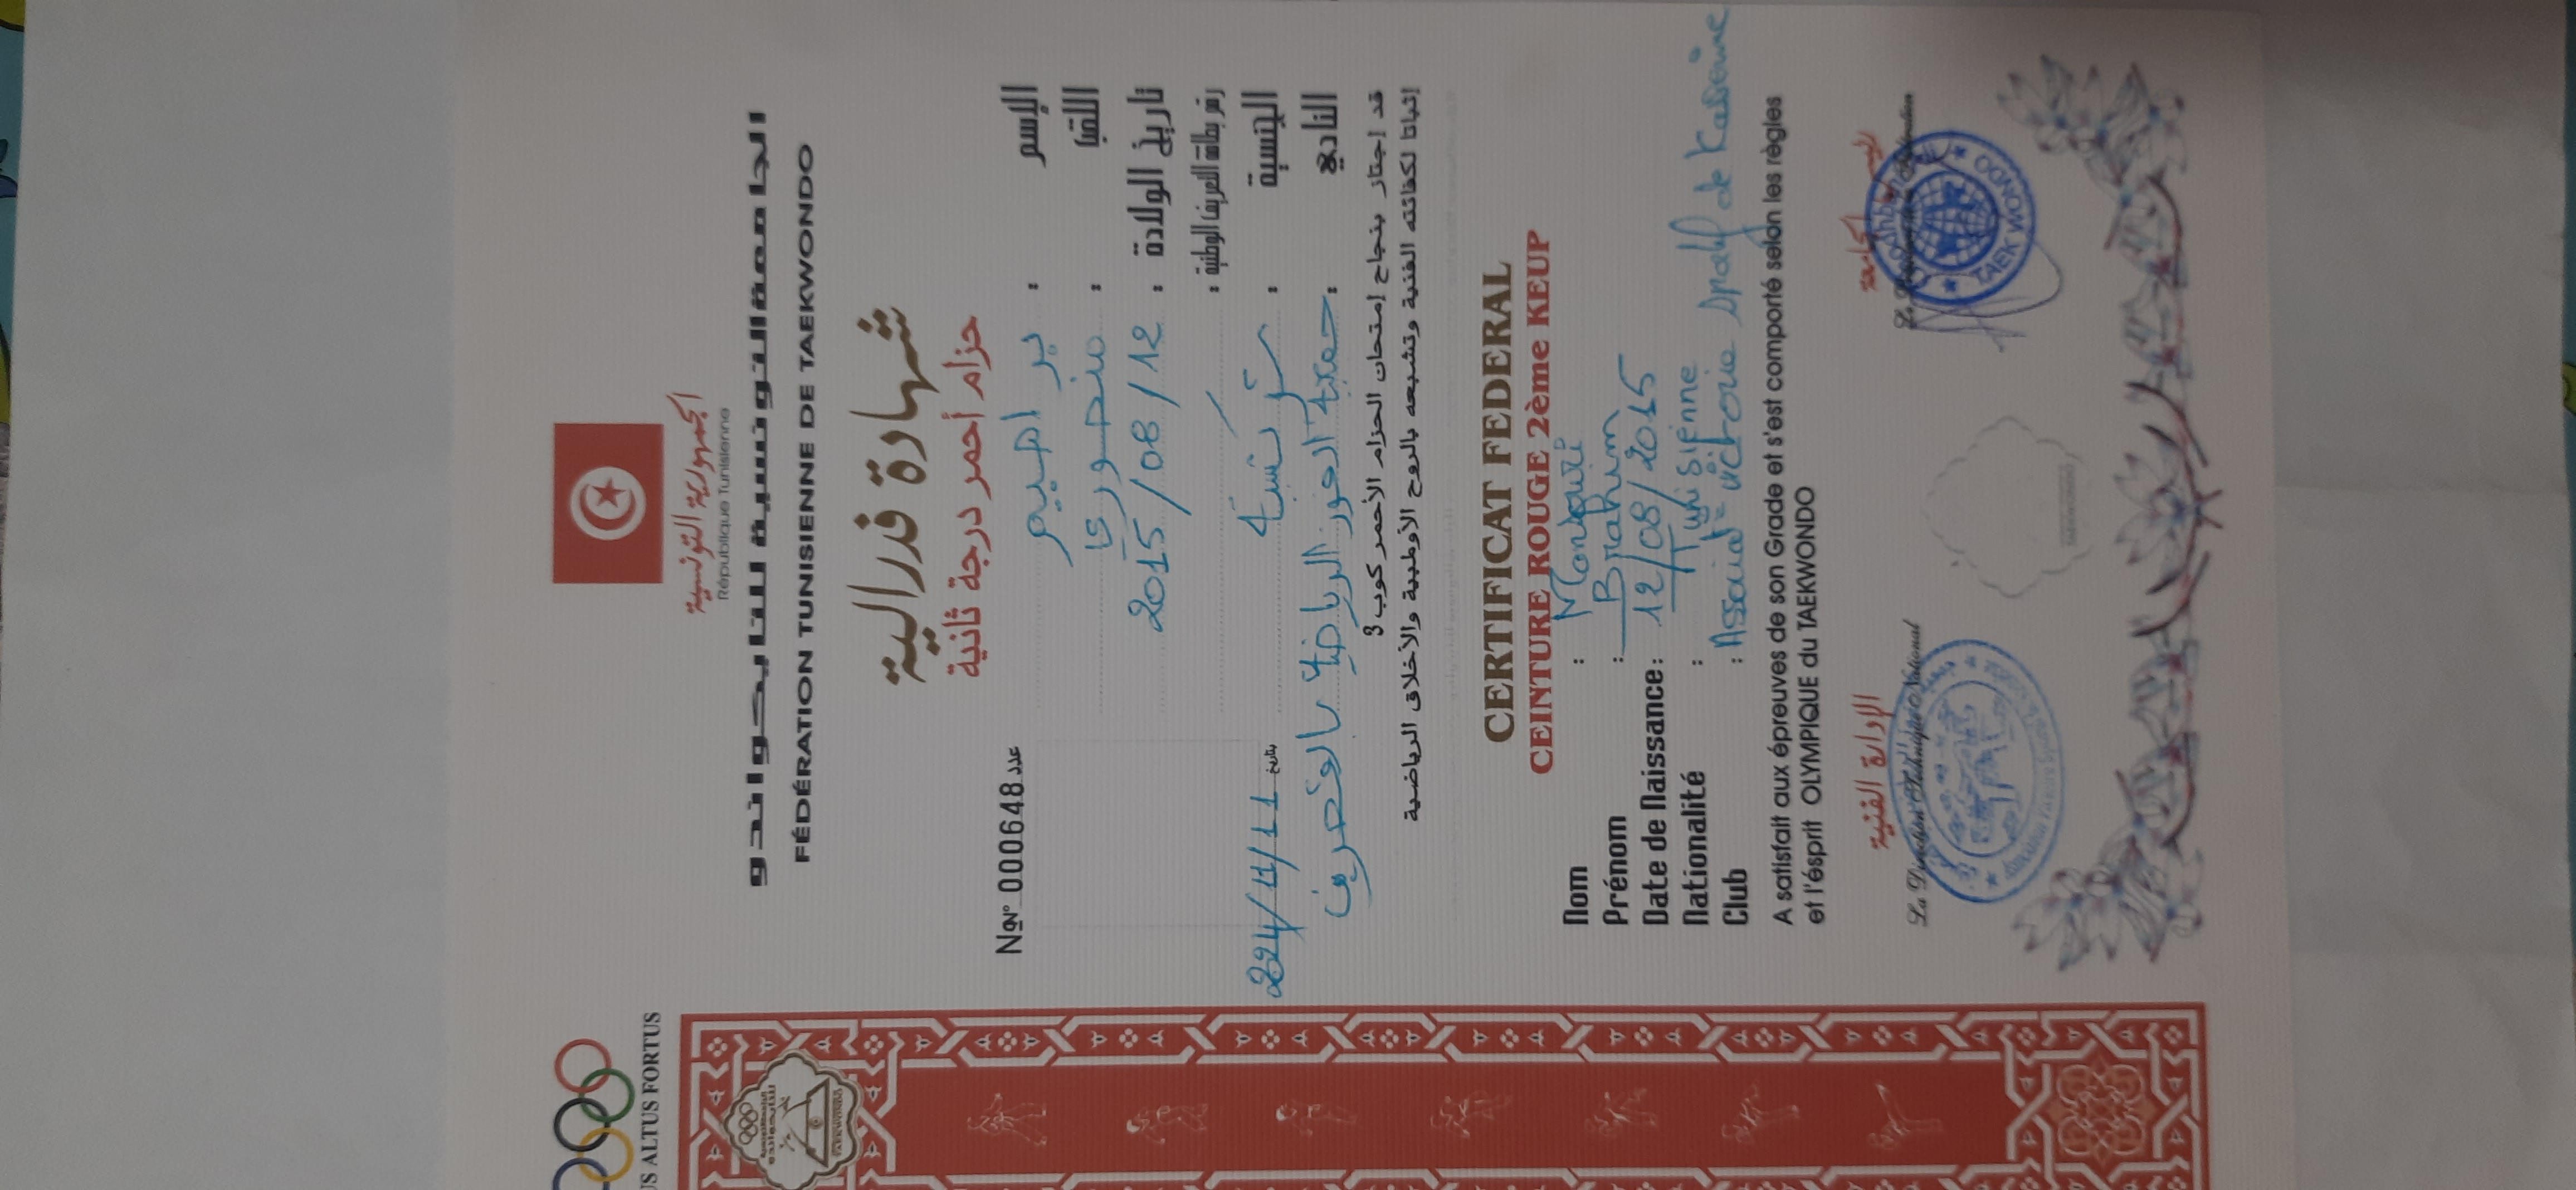 الجمهورية التونسية
République Tunisienne
الجامعة التونسية للتايكواندو
FÉDÉRATION TUNISIENNE DE TAEKWONDO
US ALTUS FORTUS
شهادة فدرالية
حزام أحمر درجة ثانية
N№ 000648 عدد
الإسم : براهيم
اللقب : منصوري
تاريخ الولادة : 2015/08/12
رقم بطاقة التعريف الوطنية :
الجنسية : تونسية
بتاريخ 224/11/11
النادي : جمعية الفوز الرياضية بالقصرين
قد إجتاز بنجاح إمتحان الحزام الأحمر كوب 3
إثباتا لكفائته الفنية وتشبعه بالروح الأولمبية والأخلاق الرياضية
CERTIFICAT FEDERAL
CEINTURE ROUGE 2ème KEUP
Nom : Mansouri
Prénom : Brahim
Date de Naissance : 12/08/2015
Nationalité : Tunisienne
Club : victoire de Kasserine
A satisfait aux épreuves de son Grade et s'est comporté selon les règles
et l'ésprit OLYMPIQUE du TAEKWONDO
الإدارة الفنية
La Direction Technique National
TAEKWONDO